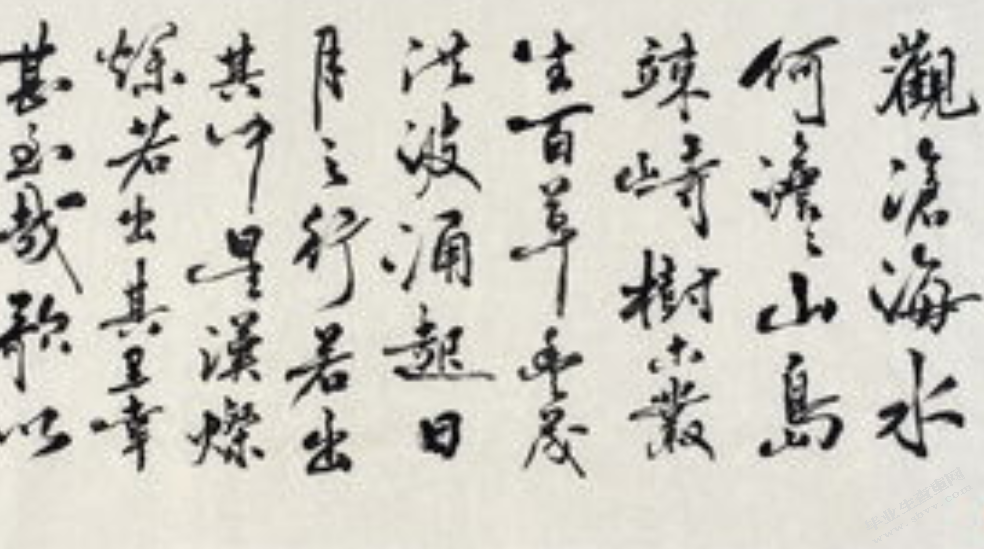 觀滄海水
何澹々山島
竦峙樹木叢
生百草豐茂
洪波涌起日
月之行若出
其中星漢燦
爛若出其里幸
甚至哉歌以